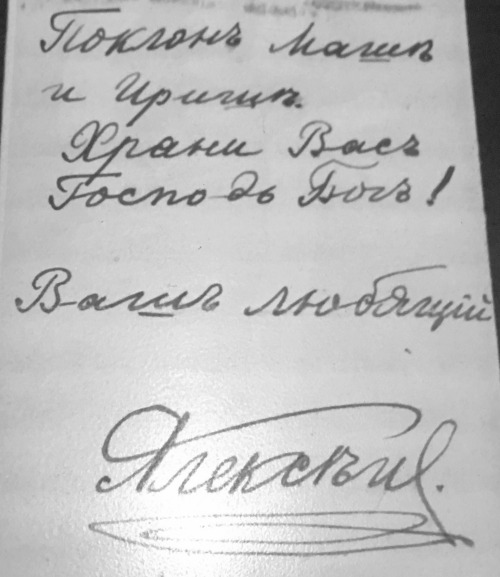 Поклонъ Машѣ
и Иришѣ.
Храни Васъ
Господь Богъ!
Вашъ любящій
Алексѣй.